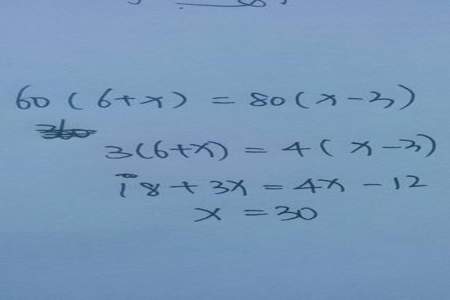 60 ( 6 + x ) = 80 ( x - 3 )
3 ( 6 + x ) = 4 ( x - 3 )
18 + 3x = 4x - 12
x = 30